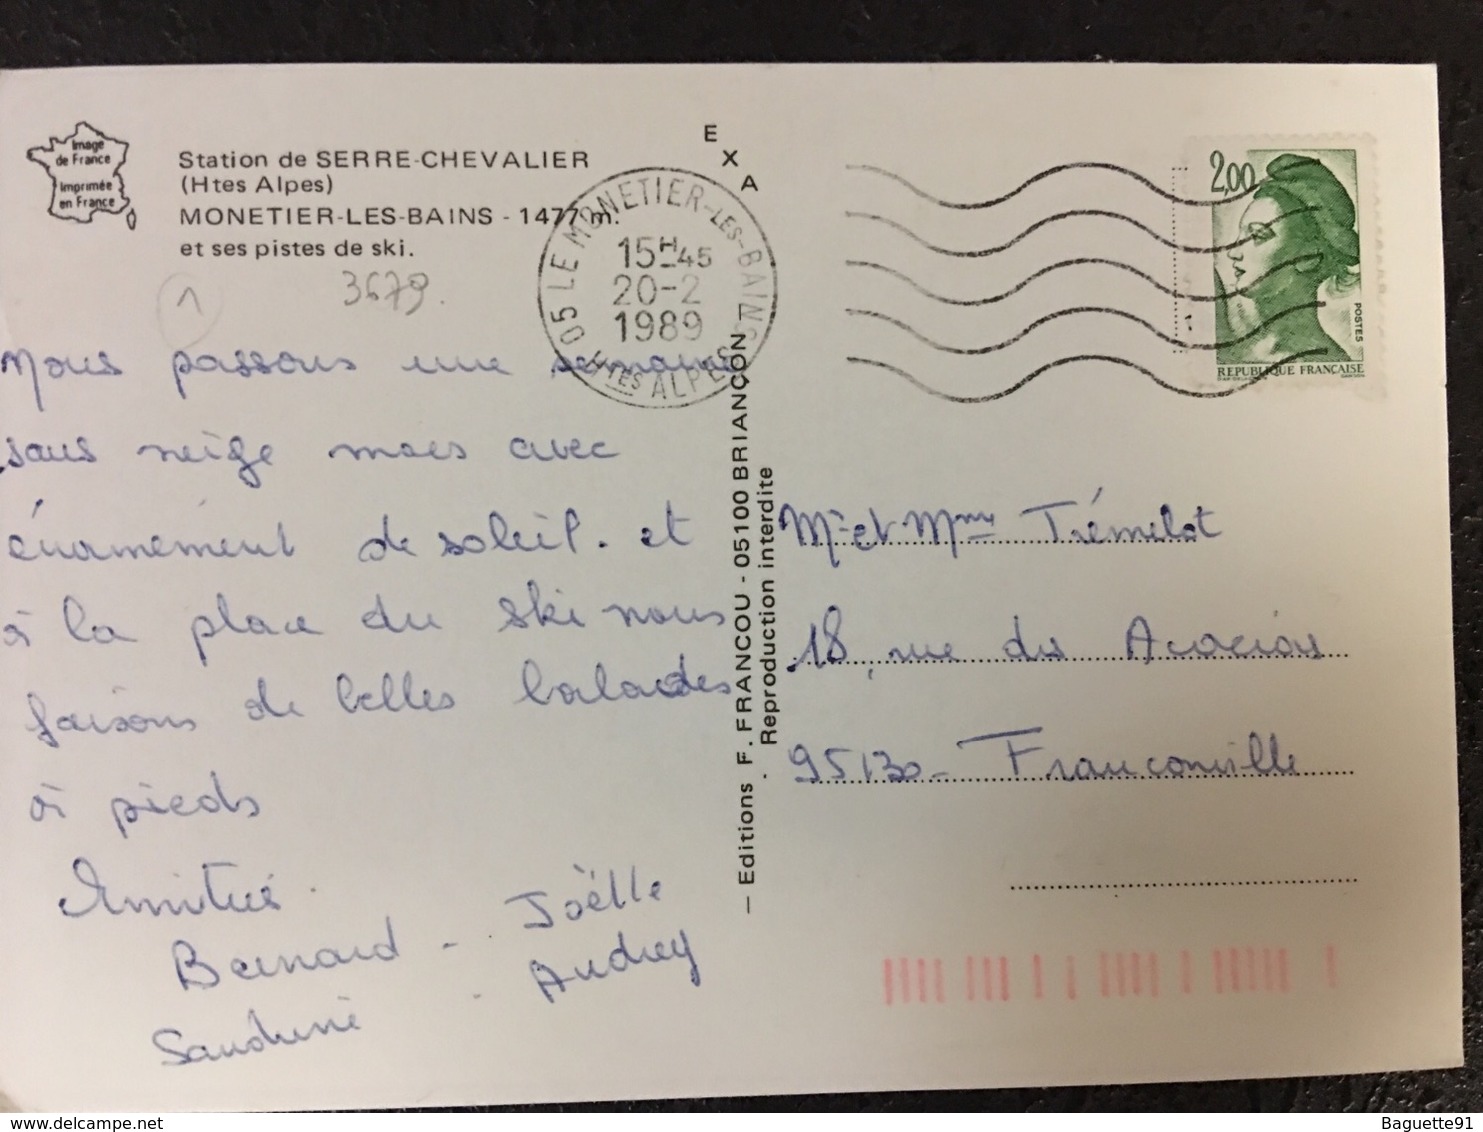 Image
de France
Imprimée
en France
Station de SERRE-CHEVALIER
(Htes Alpes)
MONETIER-LES-BAINS - 1477 m.
et ses pistes de ski.
3679.
1
EXA
05 LE MONETIER-LES-BAINS
15H45
20-2
1989
HTES ALPES
2,00
POSTES
REPUBLIQUE FRANÇAISE
Nous passons une semaine
sans neige mais avec
énormément de soleil. et
à la place du ski nous
faisons de belles balades
à pieds
Amitié.
Bernard - Joëlle
Sandrine - Audrey
— Editions F. FRANCOU - 05100 BRIANÇON —
Reproduction interdite
Mr et Mme Trémelot
18, rue des Acacias
95130 - Franconville
Baguette91